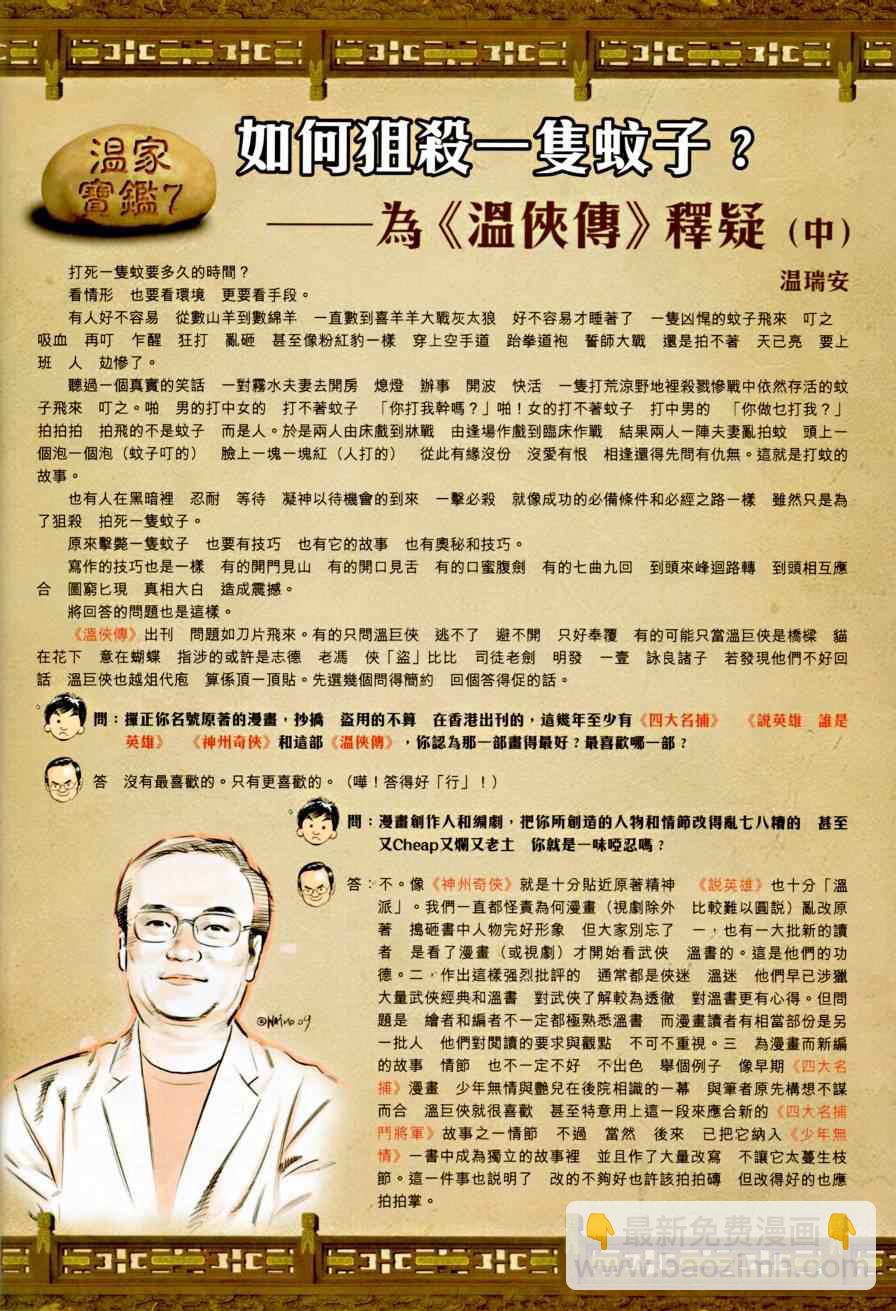 溫家
寶鑑7
如何狙殺一隻蚊子？
——為《溫俠傳》釋疑（中）
温瑞安
打死一隻蚊要多久的時間？
看情形　也要看環境　更要看手段。
有人好不容易　從數山羊到數綿羊　一直數到喜羊羊大戰灰太狼　好不容易才睡著了　一隻凶悍的蚊子飛來　叮之
吸血　再叮　乍醒　狂打　亂砸　甚至像粉紅豹一樣　穿上空手道　跆拳道袍　誓師大戰　還是拍不著　天已亮　要上
班　人　攰慘了。
聽過一個真實的笑話　一對霧水夫妻去開房　熄燈　辦事　開波　快活　一隻打荒涼野地裡殺戮慘戰中依然存活的蚊
子飛來　叮之。啪　男的打中女的　打不著蚊子　「你打我幹嗎？」啪！女的打不著蚊子　打中男的　「你做乜打我？」
拍拍拍　拍飛的不是蚊子　而是人。於是兩人由床戲到牀戰　由逢場作戲到臨床作戰　結果兩人一陣夫妻亂拍蚊　頭上一
個泡一個泡（蚊子叮的）　臉上一塊一塊紅（人打的）　從此有緣沒份　沒愛有恨　相逢還得先問有仇無。這就是打蚊的
故事。
也有人在黑暗裡　忍耐　等待　凝神以待機會的到來　一擊必殺　就像成功的必備條件和必經之路一樣　雖然只是為
了狙殺　拍死一隻蚊子。
原來擊斃一隻蚊子　也要有技巧　也有它的故事　也有奧秘和技巧。
寫作的技巧也是一樣　有的開門見山　有的開口見舌　有的口蜜腹劍　有的七曲九回　到頭來峰迴路轉　到頭相互應
合　圖窮匕現　真相大白　造成震撼。
將回答的問題也是這樣。
《溫俠傳》出刊　問題如刀片飛來。有的只問溫巨俠　逃不了　避不開　只好奉覆　有的可能只當溫巨俠是橋樑　貓
在花下　意在蝴蝶　指涉的或許是志德　老馮　俠「盜」比比　司徒老劍　明發　一壹　詠良諸子　若發現他們不好回
話　溫巨俠也越俎代庖　算係頂一頂貼。先選幾個問得簡約　回個答得促的話。
問：攞正你名號原著的漫畫，抄撟　盜用的不算　在香港出刊的，這幾年至少有《四大名捕》　《說英雄　誰是
英雄》　《神州奇俠》和這部《溫俠傳》，你認為那一部畫得最好？最喜歡哪一部？
答　沒有最喜歡的。只有更喜歡的。（嘩！答得好「行」！）
問：漫畫創作人和編劇，把你所創造的人物和情節改得亂七八糟的　甚至
又Cheap又爛又老土　你就是一味啞忍嗎？
答：不。像《神州奇俠》就是十分貼近原著精神　《說英雄》也十分「溫
派」。我們一直都怪責為何漫畫（視劇除外　比較難以圓說）亂改原
著　搗砸書中人物完好形象　但大家別忘了　一，也有一大批新的讀
者　是看了漫畫（或視劇）才開始看武俠　溫書的。這是他們的功
德。二，作出這樣强烈批評的　通常都是俠迷　溫迷　他們早已涉獵
大量武俠經典和溫書　對武俠了解較為透徹　對溫書更有心得。但問
題是　繪者和編者不一定都極熟悉溫書　而漫畫讀者有相當部份是另
一批人　他們對閱讀的要求與觀點　不可不重視。三　為漫畫而新編
的故事　情節　也不一定不好　不出色　舉個例子　像早期《四大名
捕》漫畫　少年無情與艷兒在後院相識的一幕　與筆者原先構想不謀
而合　溫巨俠就很喜歡　甚至特意用上這一段來應合新的《四大名捕
鬥將軍》故事之一情節　不過　當然　後來　已把它納入《少年無
情》一書中成為獨立的故事裡　並且作了大量改寫　不讓它太蔓生枝
節。這一件事也說明了　改的不夠好也許該拍拍磚　但改得好的也應
拍拍掌。
最新免费漫画
www.baozimh.com